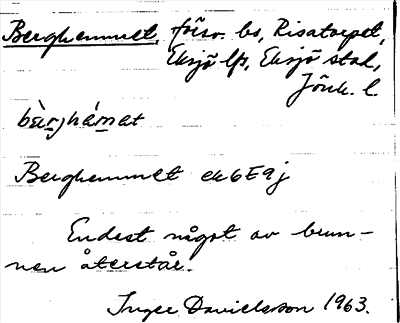 Berghemmet, försv. bs, Risatorpet,
Eksjö lfs, Eksjö stad,
Jönk. l
bàrjhémat
Berghemmet ek 6E9j
Endast något av brun-
nen återstår.
Inger Danielsson 1963.